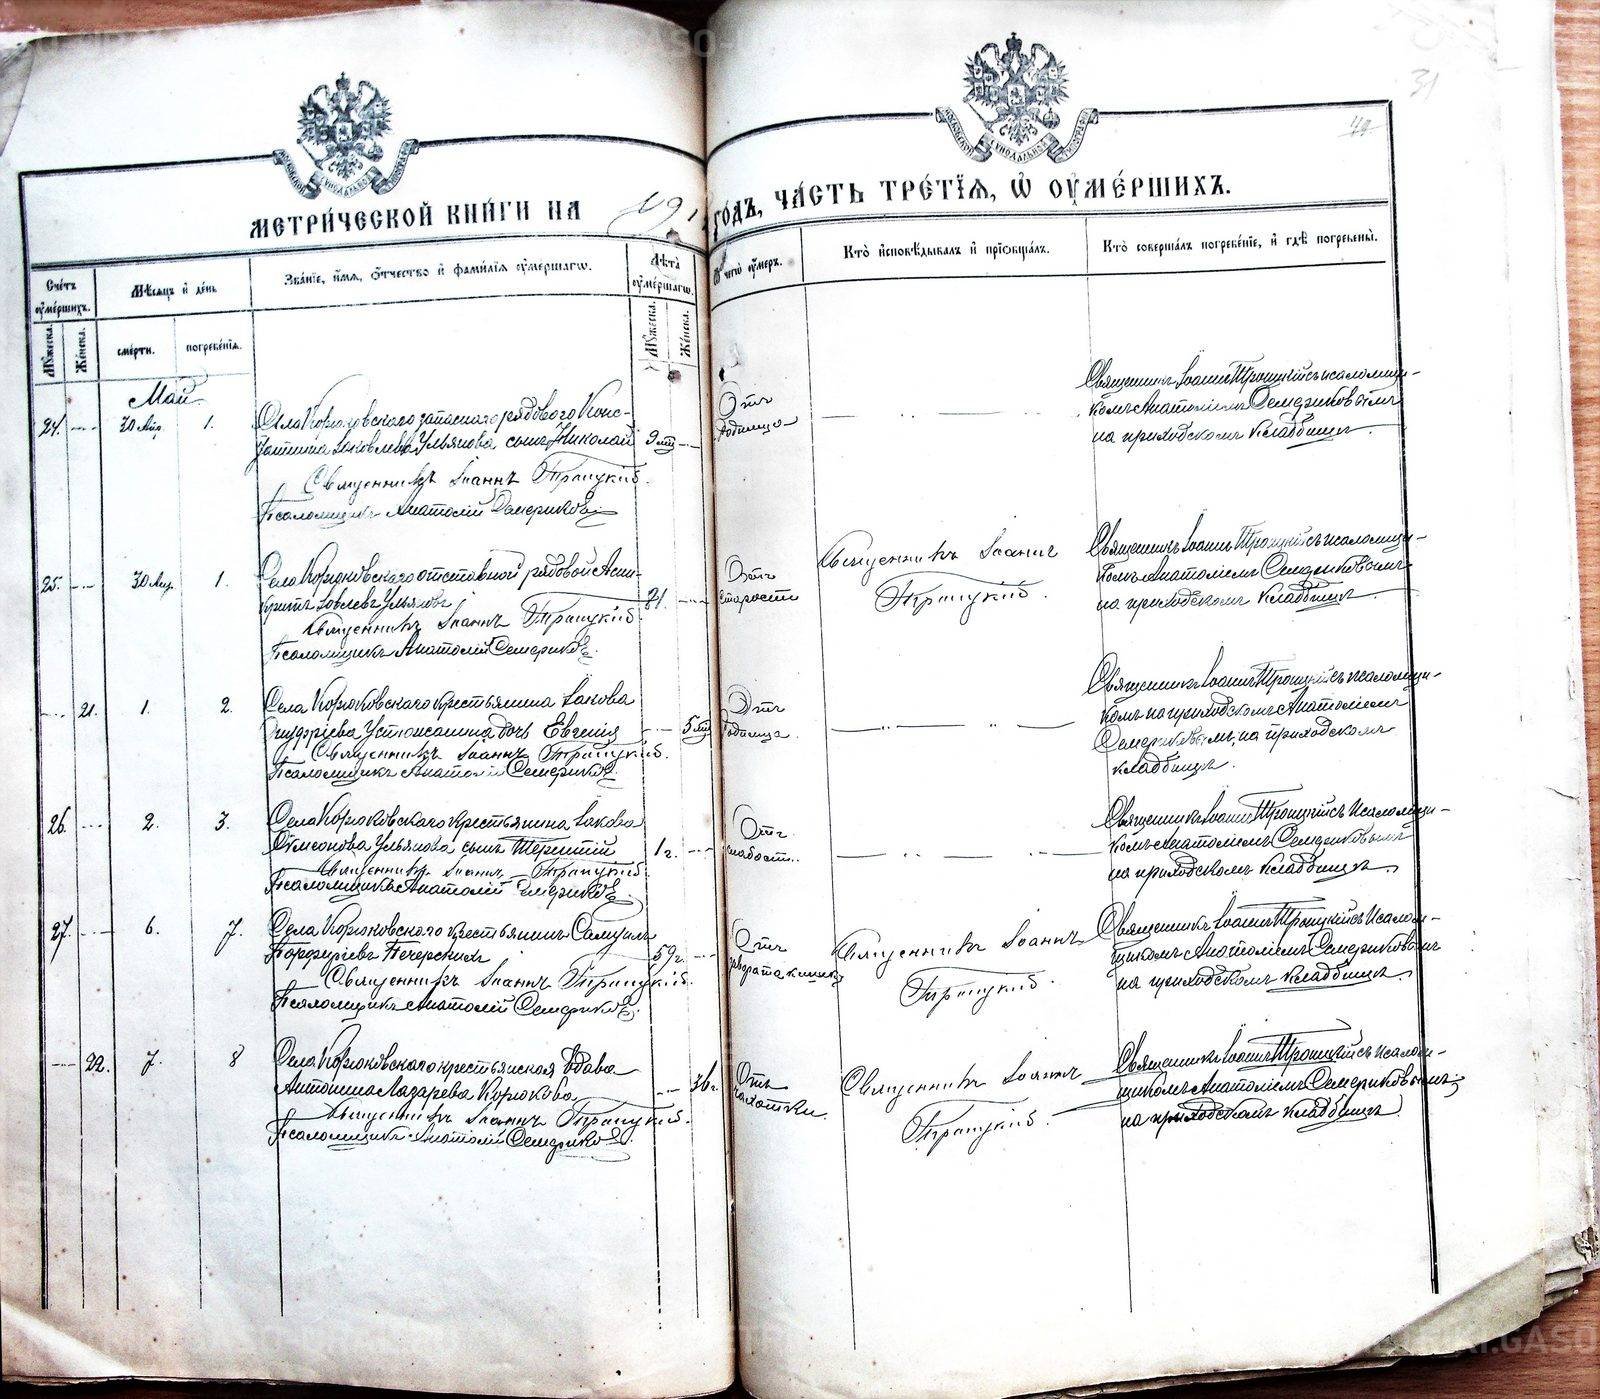 31
МЕТРИЧЕСКОЙ КНИГИ НА 191 ГОДЪ, ЧАСТЬ ТРЕТІЯ, Ѿ ОУМЕРШИХЪ.
Счетъ оумершихъ.
Мꙋжеска.
Женска.
Мѣсяцъ и день
смерти.
погребенія.
Званіе, имя, отчество и фамилія оумершагѡ.
Лѣта оумершагѡ.
Мꙋжеска.
Женска.
Ѿ чегѡ оумеръ.
Кто исповѣдывалъ и пріобщалъ.
Кто совершалъ погребеніе, и гдѣ погребены.
Май.
24. 30 Апр. 1.
Села Корюковскаго запаснаго рядового Конс-
тантина Іаковлева Ульянова сынъ Николай
9 мц
Священникъ Іоаннъ Троицкій.
Псаломщикъ Анатолій Семериковъ
Отъ
родимца
Священник Іоанн Троицкій съ псаломщи-
комъ Анатоліемъ Семериковымъ
на приходскомъ кладбищѣ.
25. 30 Апр. 1.
Села Корюковскаго отставной рядовой
Ульяновъ
81.
Священникъ Іоаннъ Троицкій
Псаломщикъ Анатолій Семериковъ.
Отъ
старости
Священникъ Іоаннъ
Троицкій.
Священник Іоанн Троицкій съ псаломщи-
комъ Анатоліемъ Семериковымъ
на приходскомъ кладбищѣ.
21. 1. 2.
Села Корюковскаго крестьянина Іакова
дочь Евгенія
5 мц
Священникъ Іоаннъ Троицкій.
Псаломщик Анатолій Семериков.
Отъ
родимца.
Священник Іоанн Троицкій съ псаломщи-
комъ на приходскомъ Анатоліем
Семериковымъ, на приходском
кладбищѣ.
26. 2. 3.
Села Корюковскаго крестьянина Іакова
Симеонова Ульянова сынъ Терентій
1 г.
Священникъ Іоаннъ Троицкій
Псаломщикъ Анатолій Семериковъ
Отъ
слабост.
Священник Іоанн Троицкій съ псаломщи-
комъ Анатоліемъ Семериковымъ
на приходскомъ кладбищѣ.
27. 6. 7.
Села Корюковскаго крестьянинъ Самуилъ
Порфиріевъ Печерских
59 г.
Священникъ Іоаннъ Троицкій.
Псаломщикъ Анатолій Семериковъ.
Отъ
заворота кишекъ
Священникъ Іоаннъ
Троицкій.
Священник Іоанн Троицкій съ псалом-
щикомъ Анатоліемъ Семериковым
на приходскомъ кладбищѣ.
22. 7. 8
Села Корюковскаго крестьянская вдова
Антонина Лазарева Корюкова
36 г.
Священникъ Іоаннъ Троицкій.
Псаломщикъ Анатолій Семериков.
Отъ
чахотки
Священникъ Іоаннъ
Троицкій.
Священник Іоанн Троицкій съ псалом-
щикомъ Анатоліемъ Семериковымъ
на приходскомъ кладбищѣ.